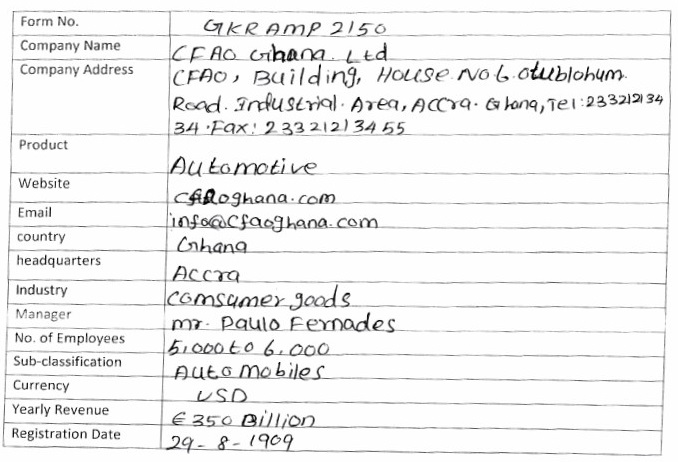 Form No. GKR AMP 2150
Company Name CFAO Ghana. Ltd
Company Address CFAO, Building, House No.6.Otublohum.
Road. Industrial. Area, Accra. Ghana, Tel:233212134
34.Fax: 233212134 55
Product Automotive
Website cfaoghana.com
Email info@cfaoghana.com
country Ghana
headquarters Accra
Industry Comsumer goods
Manager mr. Paulo Fernades
No. of Employees 5,000 to 6,000
Sub-classification Automobiles
Currency USD
Yearly Revenue € 350 Billion
Registration Date 29-8-1909